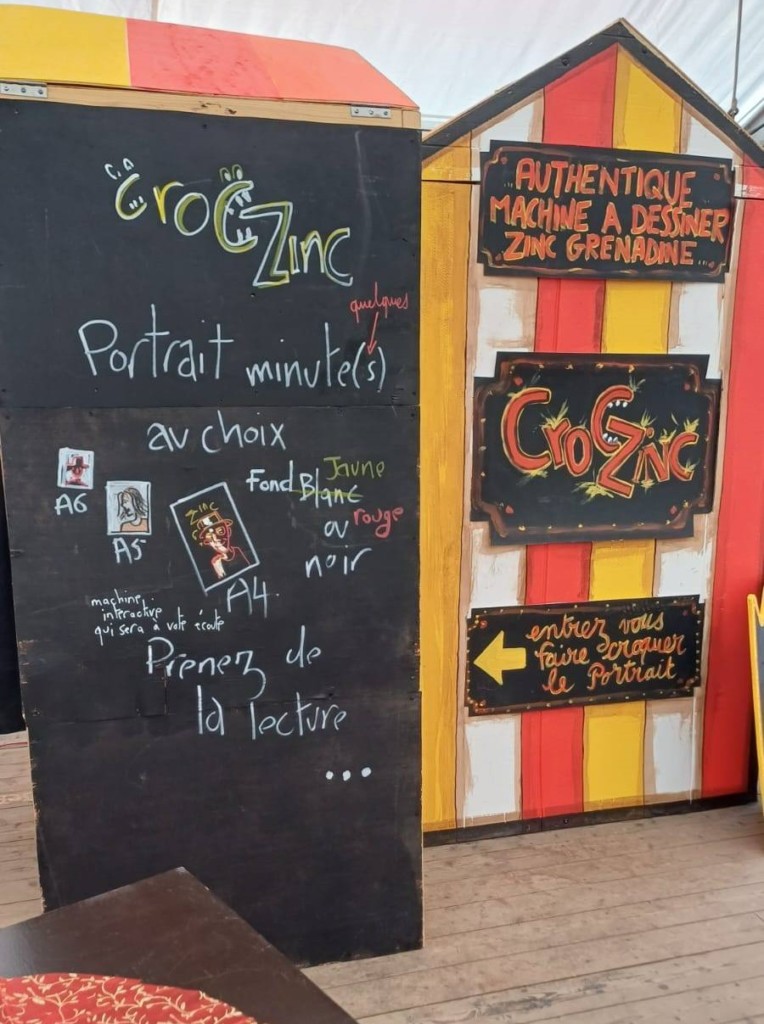 CroCZinc
quelques
Portrait minute(s)
au choix
A6
A5
ZINC
A4
Fond Blanc Jaune
ou rouge
noir
machine
interactive
qui sera à votre écoute
Prenez de
la lecture
...
AUTHENTIQUE
MACHINE A DESSINER
ZINC GRENADINE
CroCZinc
entrez vous
faire croquer
le Portrait